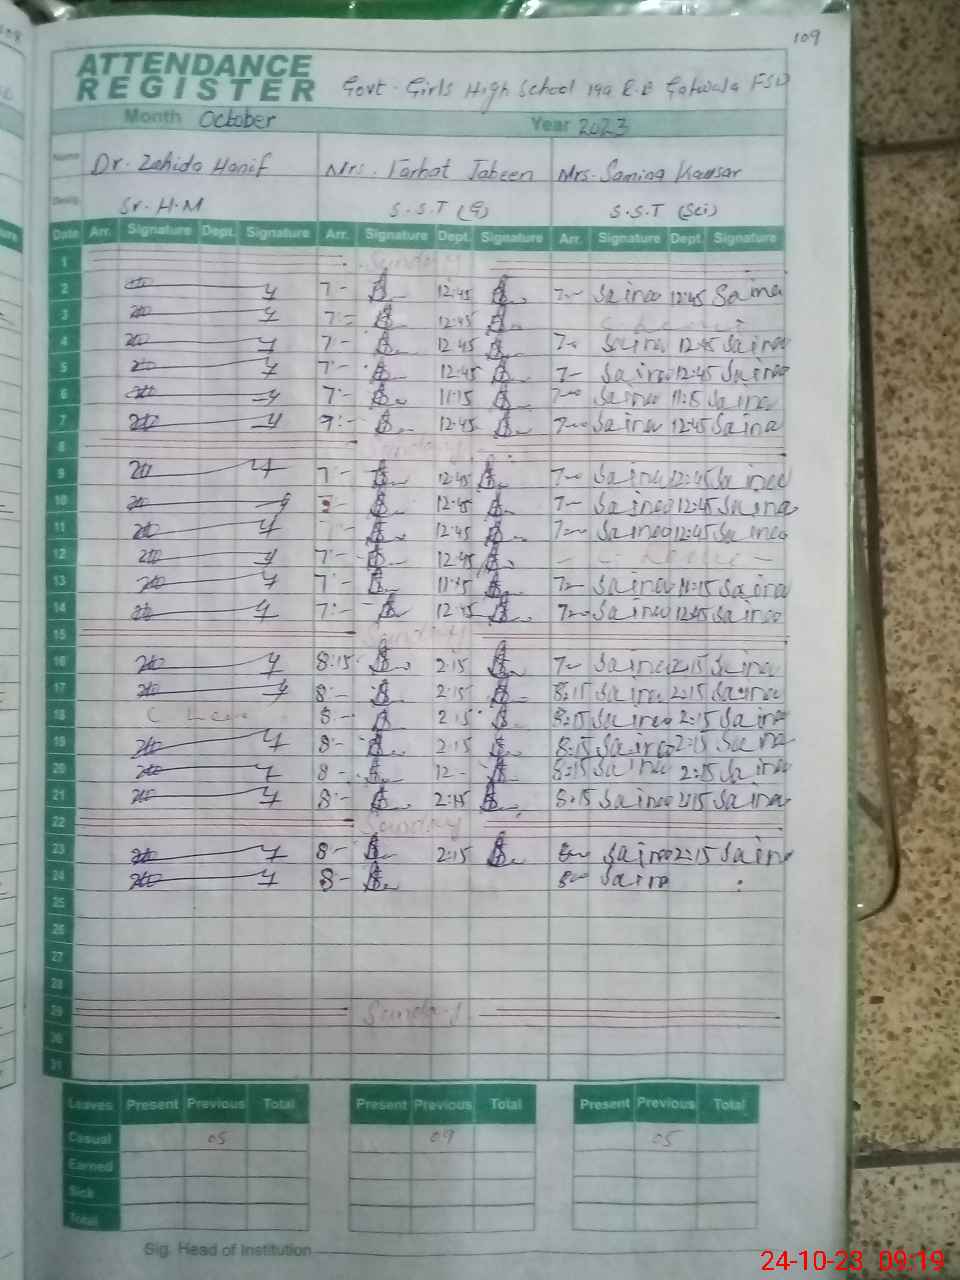 109
ATTENDANCE
REGISTER Govt. Girls High School 199 R.B Gatwala FSD
Month October Year 2023
Name Dr. Zahida Hanif Mrs. Farhat Jabeen Mrs. Samina Kausar
Desig. Sr. H.M S.S.T (G) S.S.T (Sci)
Date Arr. Signature Dept. Signature Arr. Signature Dept. Signature Arr. Signature Dept. Signature
1 Sunday
2 7:- 12:45 7- Saina 12:45 Saina
3 7:- 12:45 C Leave
4 7:- 12:45 7- Saina 12:45 Saina
5 7:- 12:45 7- Saina 12:45 Saina
6 7:- 11:15 7- Saina 11:15 Saina
7 7:- 12:45 7- Saina 12:45 Saina
8 Sunday
9 7:- 12:45 7- Saina 12:45 Saina
10 7:- 12:45 7- Saina 12:45 Saina
11 12:45 7- Saina 12:45 Saina
12 7:- 12:45 - C Leave -
13 7:- 11:15 7- Saina 11:15 Saina
14 7:- 12:45 7- Saina 12:45 Saina
15 Sunday
16 8:15 2:15 7- Saina 2:15 Saina
17 8:- 2:15 8:15 Saina 2:15 Saina
18 C Leave 8:- 2:15 8:15 Saina 2:15 Saina
19 8:- 2:15 8:15 Saina 2:15 Saina
20 8- 12- 8:15 Saina 2:15 Saina
21 8:- 2:15 8:15 Saina 2:15 Saina
22 Sunday
23 8- 2:15 8- Saina 2:15 Saina
24 8- 8- Saina
25
26
27
28
29 Sunday
30
31
Leaves Present Previous Total Present Previous Total Present Previous Total
Casual 05 09 05
Earned
Sick
Total
Sig. Head of Institution
24-10-23 09:19